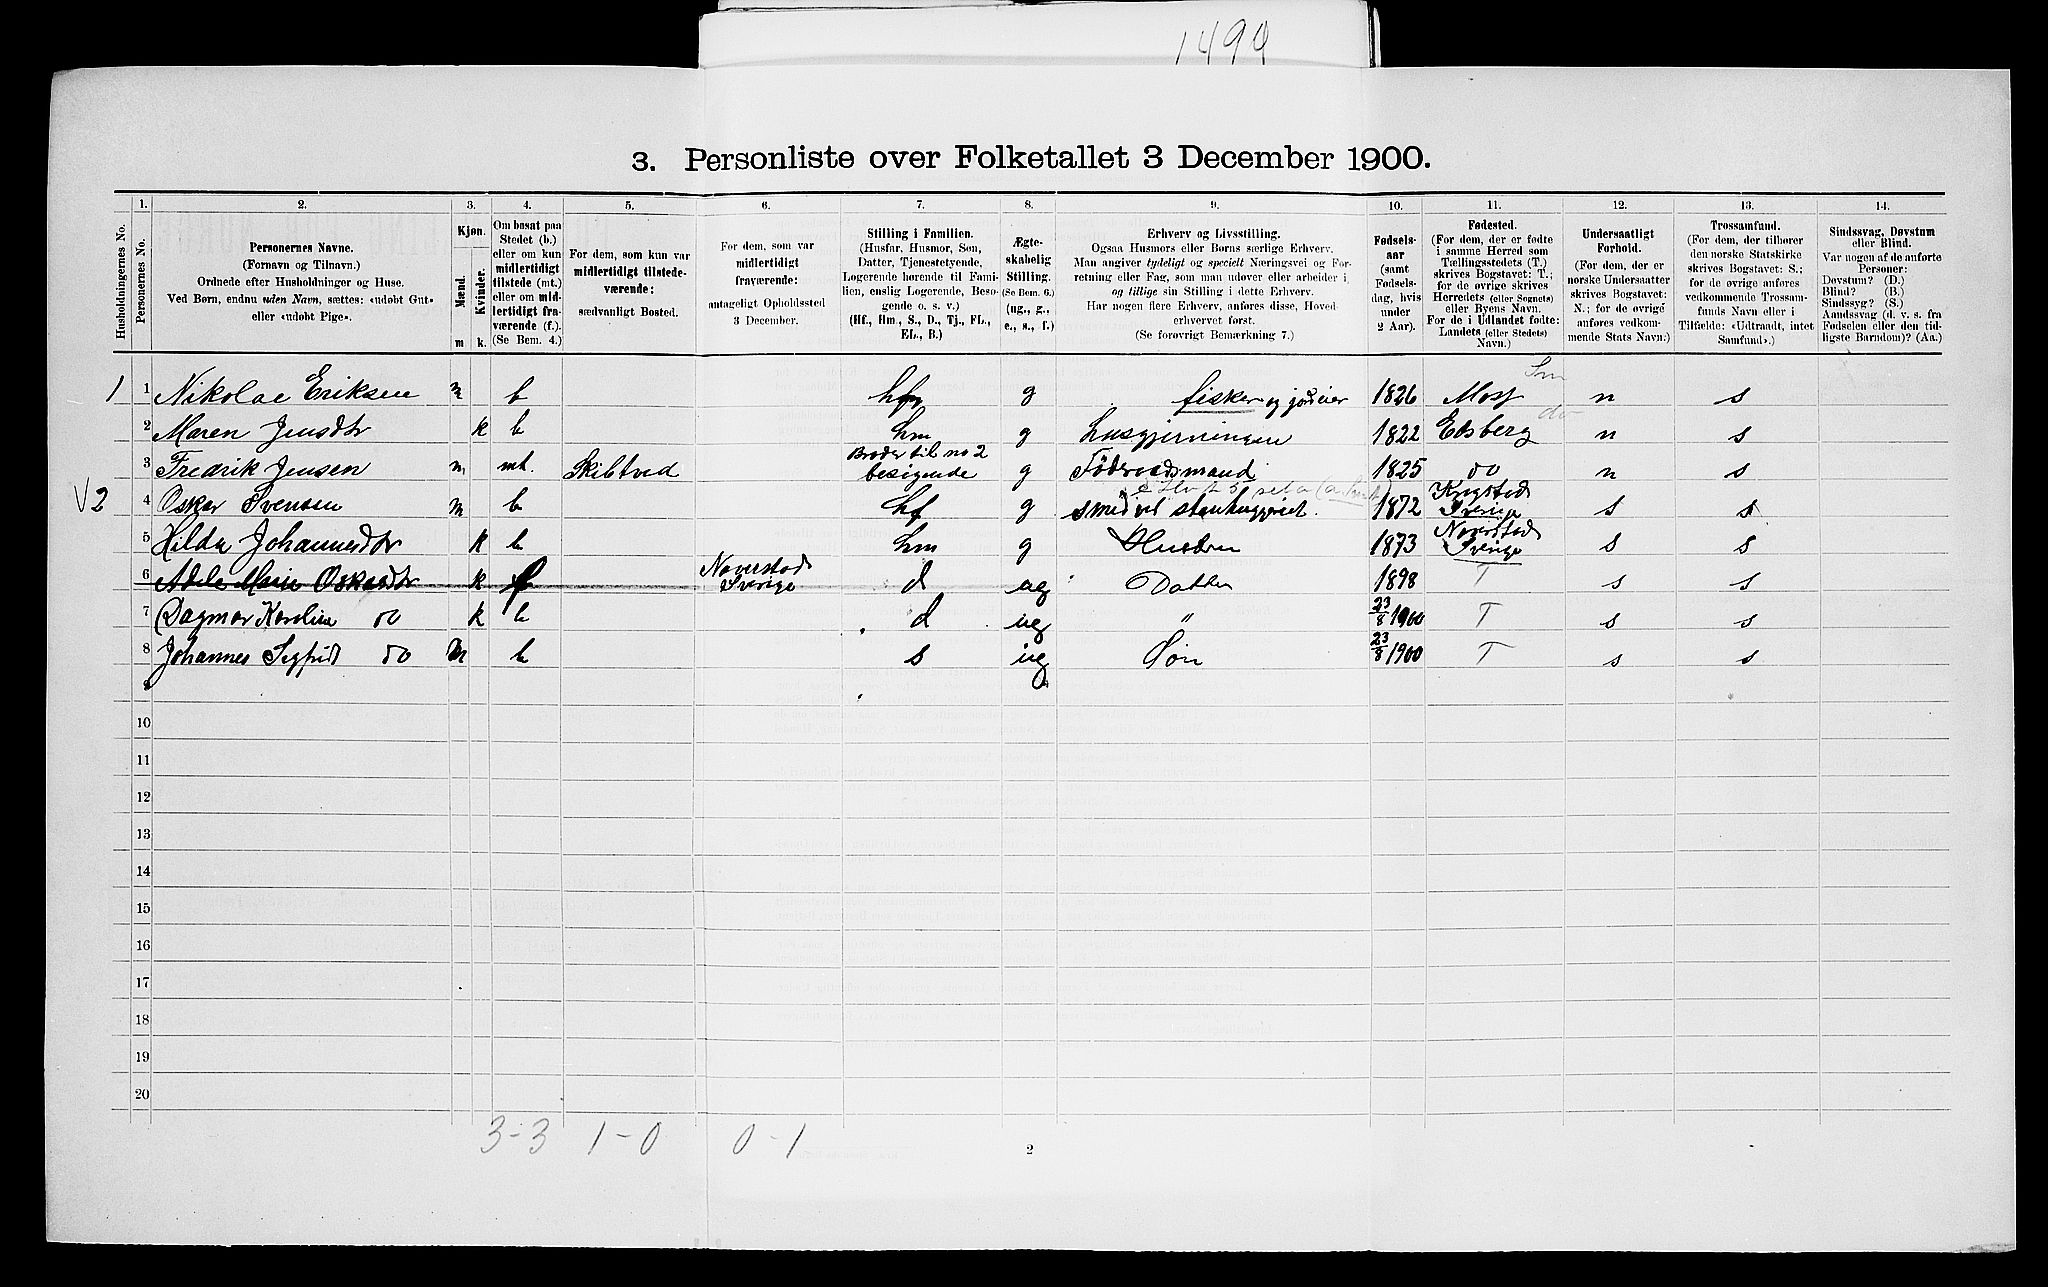 1499
3. Personliste over Folketallet 3 December 1900.
Husholdningernes No.
1.
Personernes No.
2.
Personernes Navne.
(Fornavn og Tilnavn.)
Ordnede efter Husholdninger og Huse.
Ved Børn, endnu uden Navn, sættes: «udøbt Gut»
eller «udøbt Pige».
3.
Kjøn.
Mænd.
Kvinder.
m k.
4.
Om bosat paa
Stedet (b.)
eller om kun
midlertidigt
tilstede (mt.)
eller om mid-
lertidigt fra-
værende (f.).
(Se Bem. 4.)
5.
For dem, som kun var
midlertidigt tilstede-
værende:
sædvanligt Bosted.
6.
For dem, som var
midlertidigt
fraværende:
antageligt Opholdssted
3 December.
7.
Stilling i Familien.
(Husfar, Husmor, Søn,
Datter, Tjenestetyende,
Logerende hørende til Fami-
lien, enslig Logerende, Besø-
gende o. s. v.)
(Hf., Hm., S., D., Tj., FL.,
EL., B.)
8.
Ægte-
skabelig
Stilling.
(Se Bem. 6.)
(ug., g.,
e., s., f.)
9.
Erhverv og Livsstilling.
Ogsaa Husmors eller Børns særlige Erhverv.
Man angiver tydeligt og specielt Næringsvei og For-
retning eller Fag, som man udøver eller arbeider i,
og tillige sin Stilling i dette Erhverv.
Har nogen flere Erhverv, anføres disse, Hoved-
erhvervet først.
(Se forøvrigt Bemærkning 7.)
10.
Fødsels-
aar
(samt
Fødsels-
dag, hvis
under
2 Aar).
11.
Fødested.
(For dem, der er fødte
i samme Herred som
Tællingsstedets (T.)
skrives Bogstavet: T.;
for de øvrige skrives
Herredets (eller Sognets)
eller Byens Navn.
For de i Udlandet fødte:
Landets (eller Stedets)
Navn.)
12.
Undersaatligt
Forhold.
(For dem, der er
norske Undersaatter
skrives Bogstavet:
N.; for de øvrige
anføres vedkom-
mende Stats Navn.)
13.
Trossamfund.
(For dem, der tilhører
den norske Statskirke
skrives Bogstavet: S.;
for de øvrige anføres
vedkommende Trossam-
funds Navn eller i
Tilfælde: «Udtraadt, intet
Samfund».)
14.
Sindssvag, Døvstum
eller Blind.
Var nogen af de anførte
Personer:
Døvstum? (D.)
Blind? (B.)
Sindssyg? (S.)
Aandssvag (d. v. s. fra
Fødselen eller den tid-
ligste Barndom)? (Aa.)
1 1 Nikolae Eriksen m b hf g fisker og jordeier 1826 Moss n s
2 Maren Jensdtr k b hm g husgjerningen 1822 Edsberg do n s
3 Fredrik Jensen m mt. Skibtved Broder til no 2 besøgende g Føderaadsmand 1825 do n s
V2 4 Oskar Svensen m b hf g smed ved stenhuggeriet. 1872 Krogstad Sverige s s
5 Hilda Johannesdtr k b hm g Hustru 1873 Naverstad Sverige s s
6 Adele Marie Oskarsdtr k f Naverstad Sverige d ug Datter 1898 T s s
7 Dagmar Karoline do k b d ug " 23/8 1900 T s s
8 Johannes Sigfrid do m b s ug Søn 23/8 1900 T s s
9
10
11
12
13
14
15
16
17
18
19
20
3-3 1-0 0-1
2